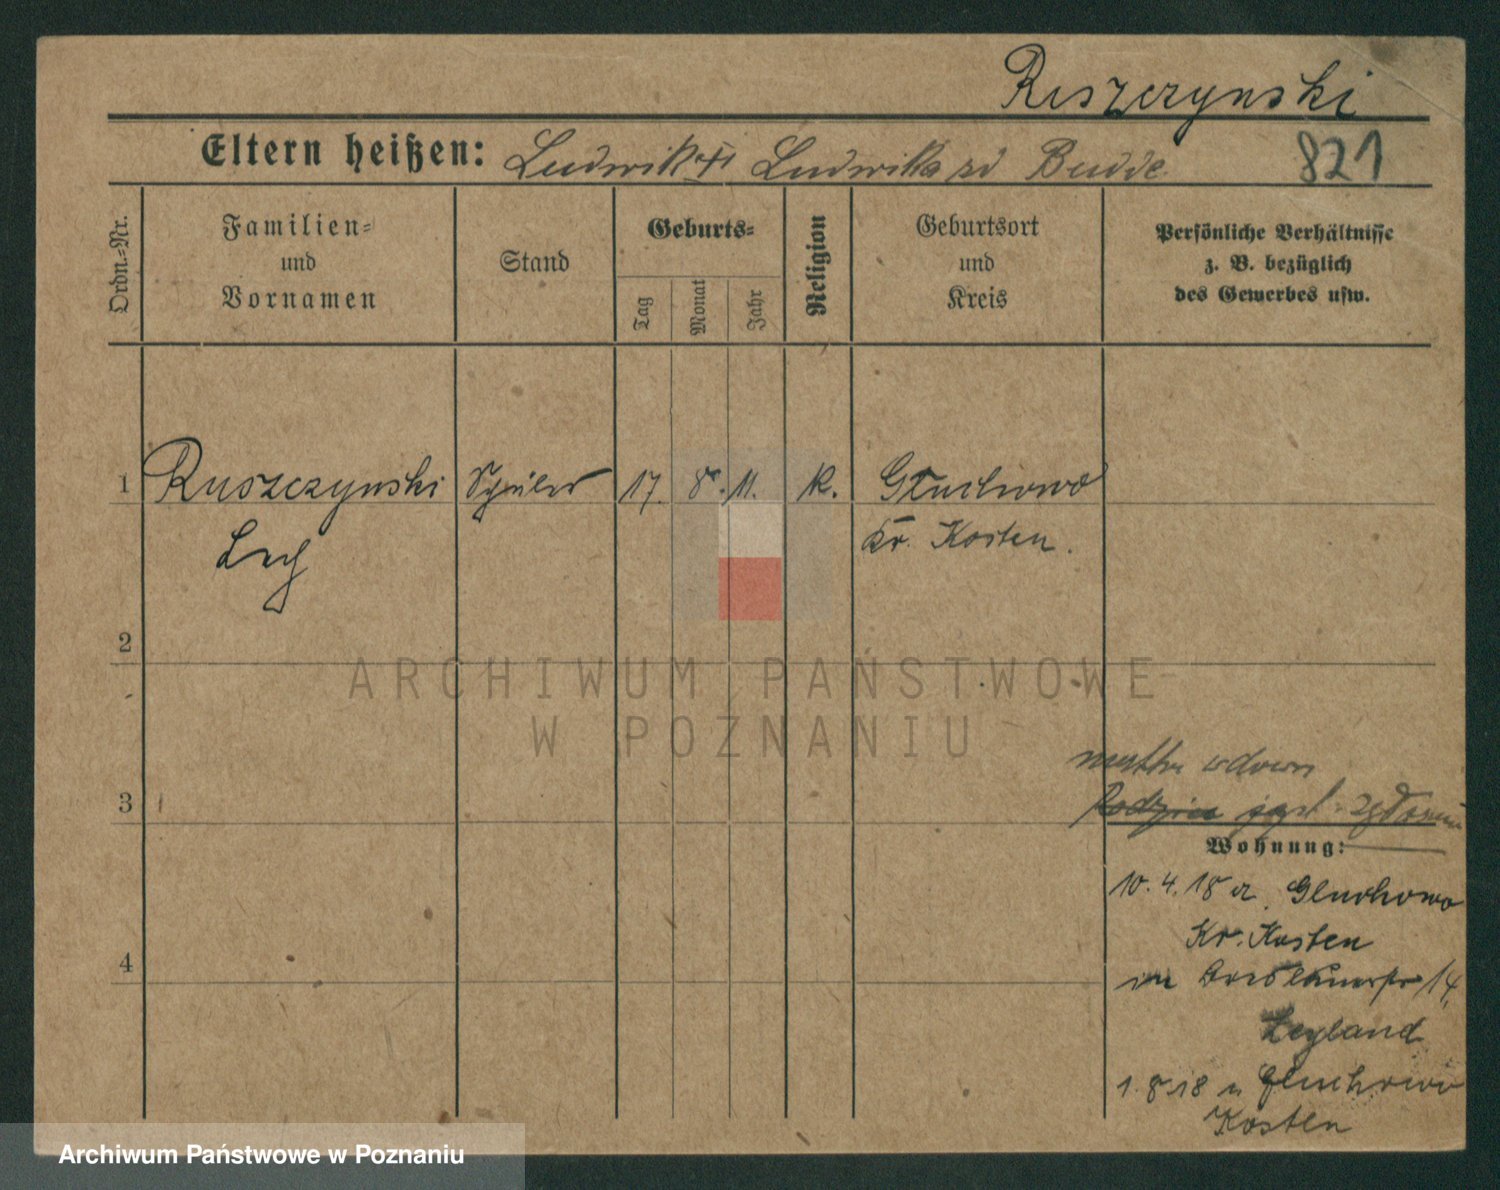 Ruszczynski
Eltern heißen: Ludwik Ludwika zd Budde
821
Ordn.=Nr.
Familien=
und
Vornamen
Stand
Geburts=
Tag
Monat
Jahr
Religion
Geburtsort
und
Kreis
Persönliche Verhältnisse
z. B. bezüglich
des Gewerbes usw.
1 Ruszczynski Schüler 17. 8. 11. K. Głuchowo
Lech
Kr. Kosten.
2
ARCHIWUM PAŃSTWOWE
W POZNANIU
3
Wohnung:
10. 4. 18 Gluchowo
Kr. Kosten
4
14
Leyland
1. 8 18 n Gluchowo
Kosten
Archiwum Państwowe w Poznaniu